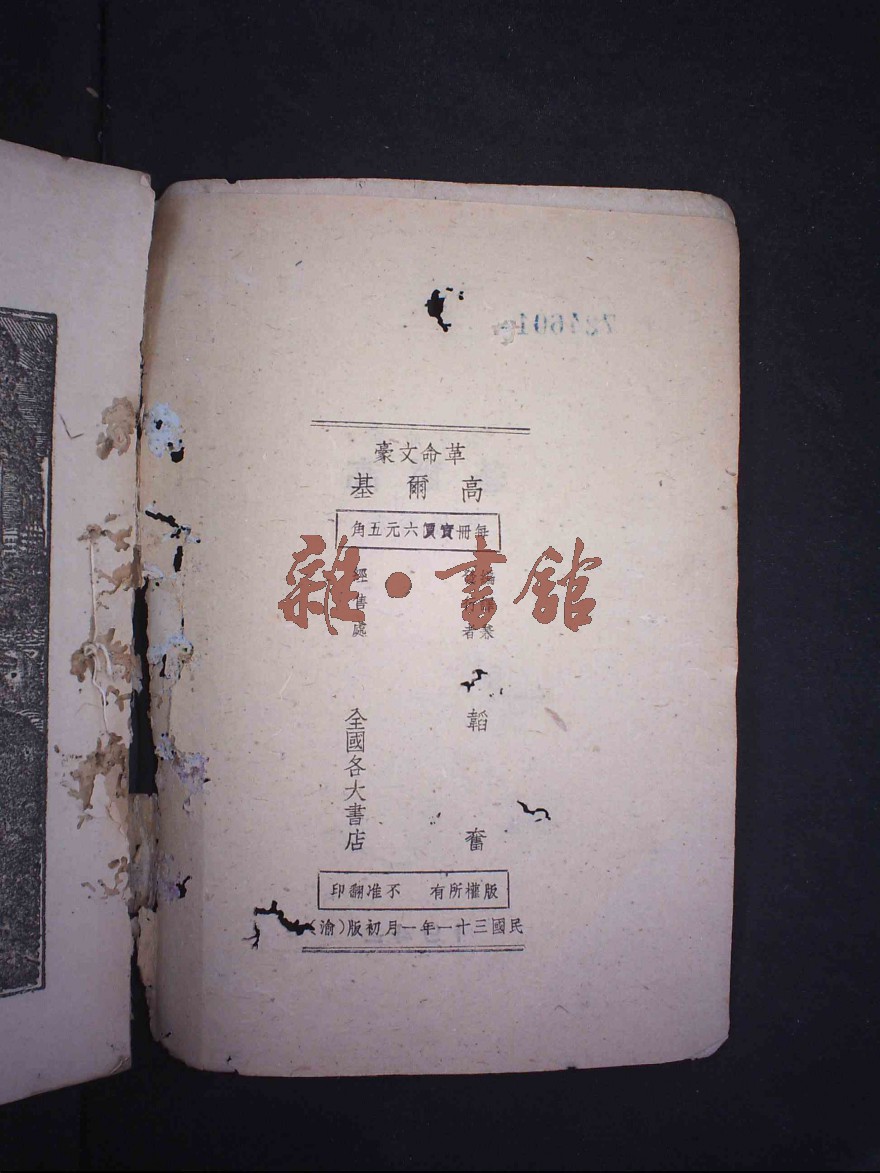 革命文豪
高爾基
每冊實價六元五角
編譯兼
發行者
韜奮
經售處
全國各大書店
版權所有 不准翻印
民國三十一年一月初版(渝)
雜·書館